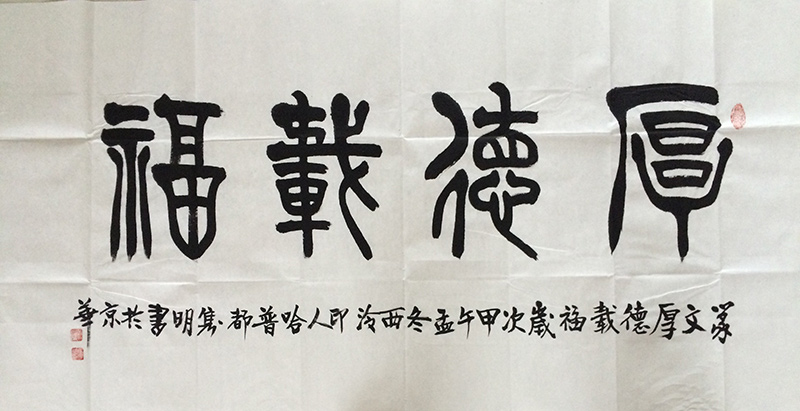 厚德載福
篆文厚德載福歲次甲午孟冬西泠印人哈普都隽明書於京華